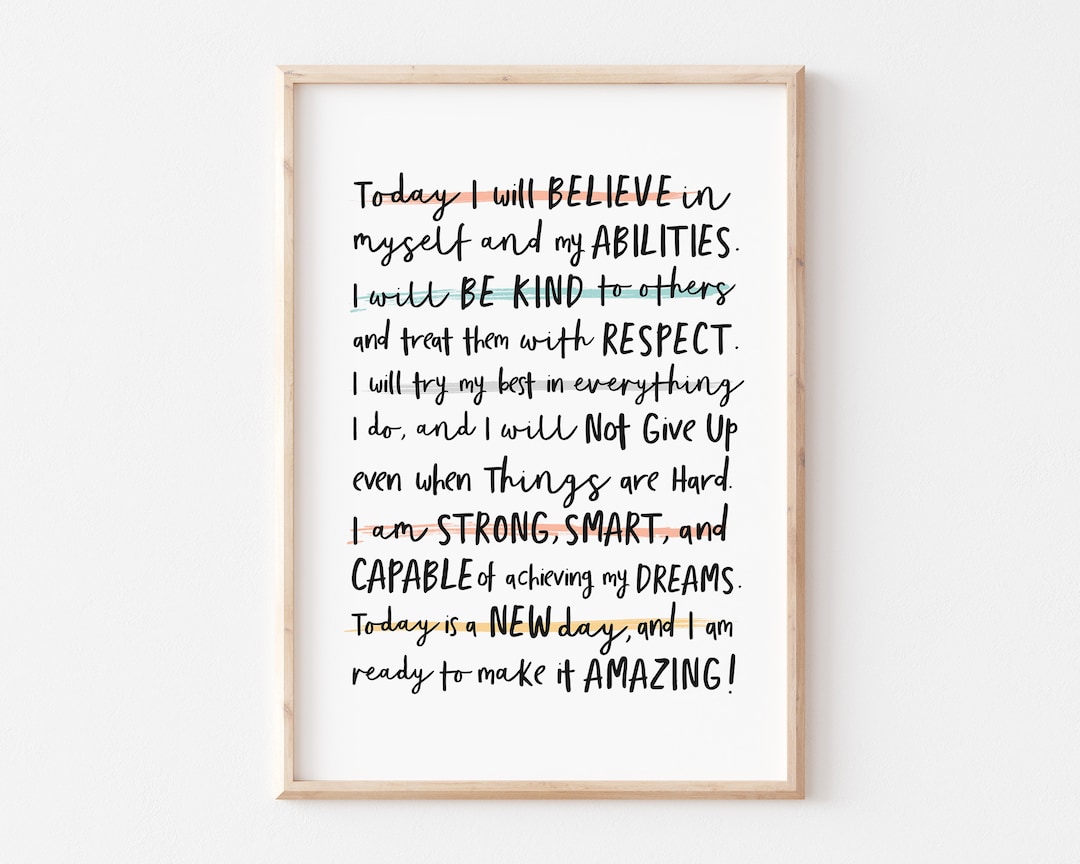 Today I will BELIEVE in
myself and my ABILITIES.
I will BE KIND to others
and treat them with RESPECT.
I will try my best in everything
I do, and I will Not Give Up
even when Things are Hard.
I am STRONG, SMART, and
CAPABLE of achieving my DREAMS.
Today is a NEW day, and I am
ready to make it AMAZING!